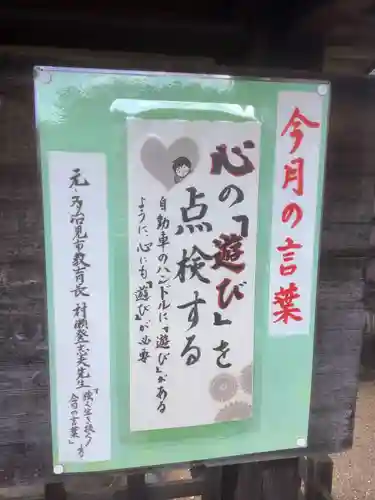 今月の言葉
心の「遊び」を
点検する
自動車のハンドルに「遊び」がある
ように、心にも「遊び」が必要
元・多治見市教育長 村瀬登志夫先生
今日の言葉」